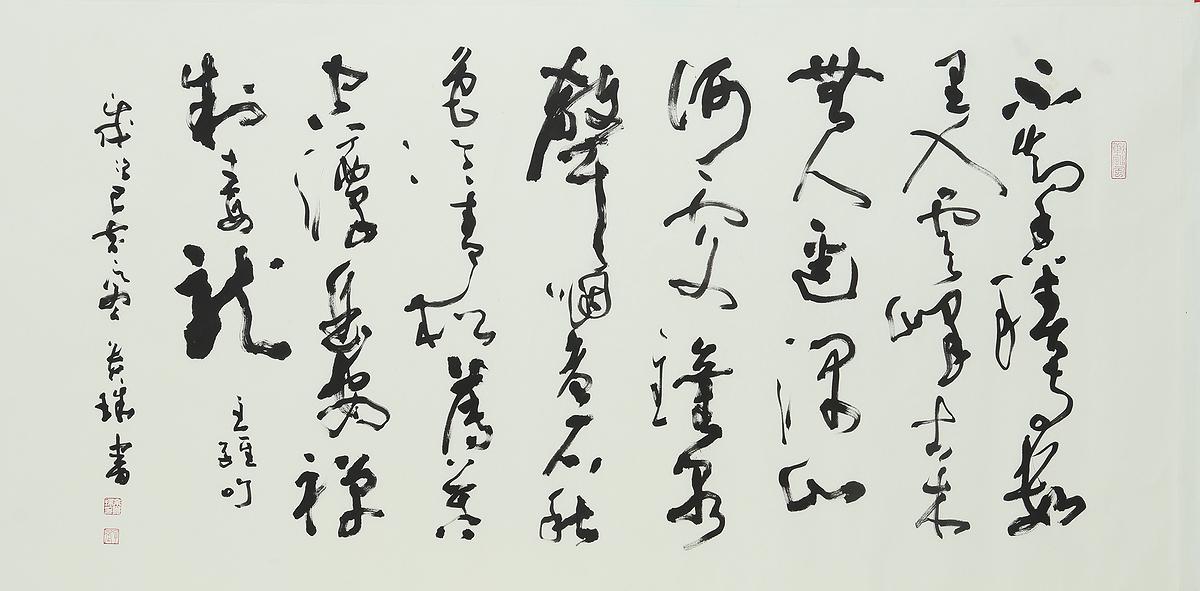 不知香積寺數
里入雲峰古木
無人逕深山
何處鐘泉
聲咽危石
色冷青松薄暮
空潭安禪
制毒龍
王維吟
歲次己亥之冬 書